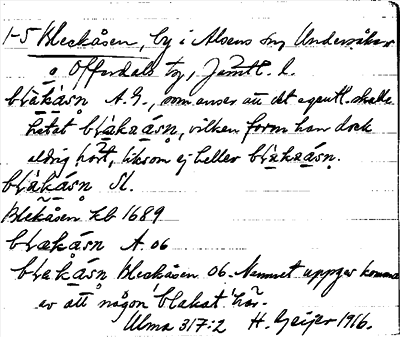 1-5 Bleckåsen, by i Alsens sn, Undersåkers
o. Offerdals tg, Jämtl. l.
blǻkåsn A.G., som anser att det egentl. skulle
hetat blækaåsn, vilken form han dock
aldrig hört, liksom ej heller blækaåsn.
blækåsn Sl.
Blekåsen Jb 1689
blækåsn A. 06
blækåsn Bleckåsen 06. Namnet uppges komma
av att någon blakat här.
Ulma 317:2 H. Geijer 1916.